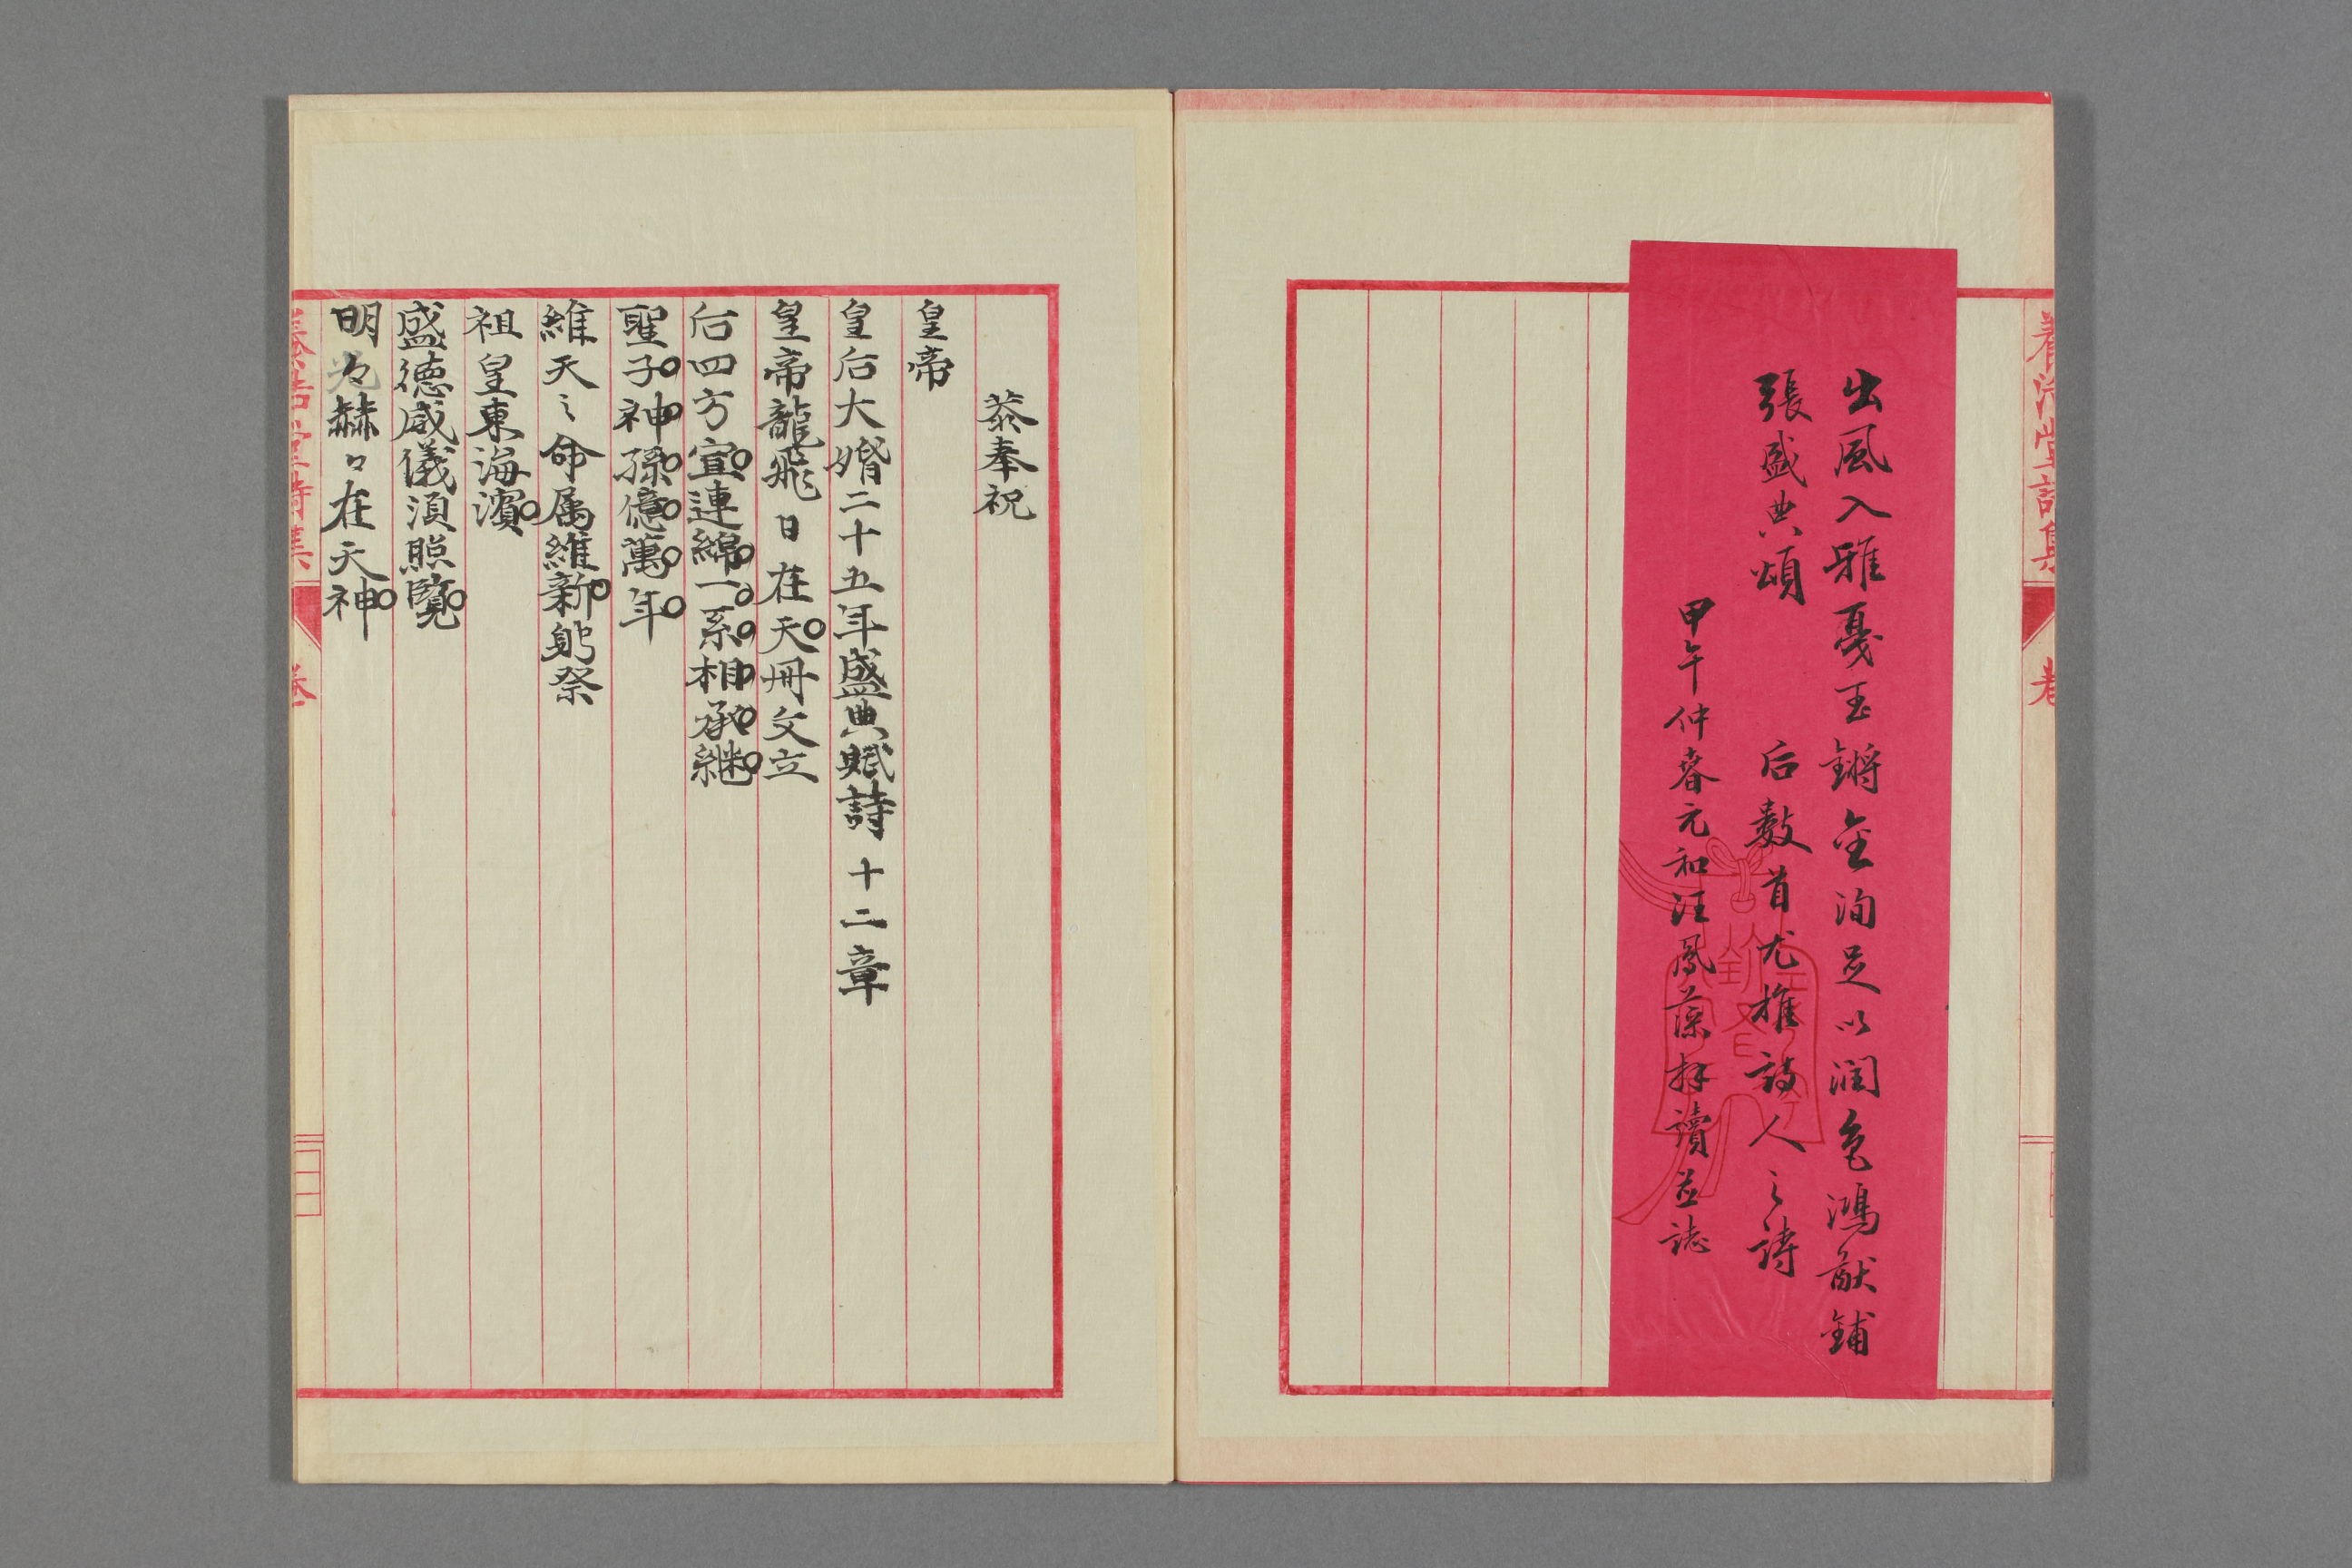 養浩堂詩集
卷
出風入雅戞玉鏘金洵足以潤色鴻猷鋪
張盛典頌 后數首尤推詩人之詩
甲午仲春元和汪鳳藻拜讀並誌
恭奉祝
皇帝
皇后大婚二十五年盛典賦詩十二章
皇帝龍飛日在天冊文立
后四方宣連綿一系相承継
聖子神孫億萬年
維天之命属維新躬祭
祖皇東海濱
盛徳威儀須照覽
明々赫々在天神
養浩堂詩集
卷